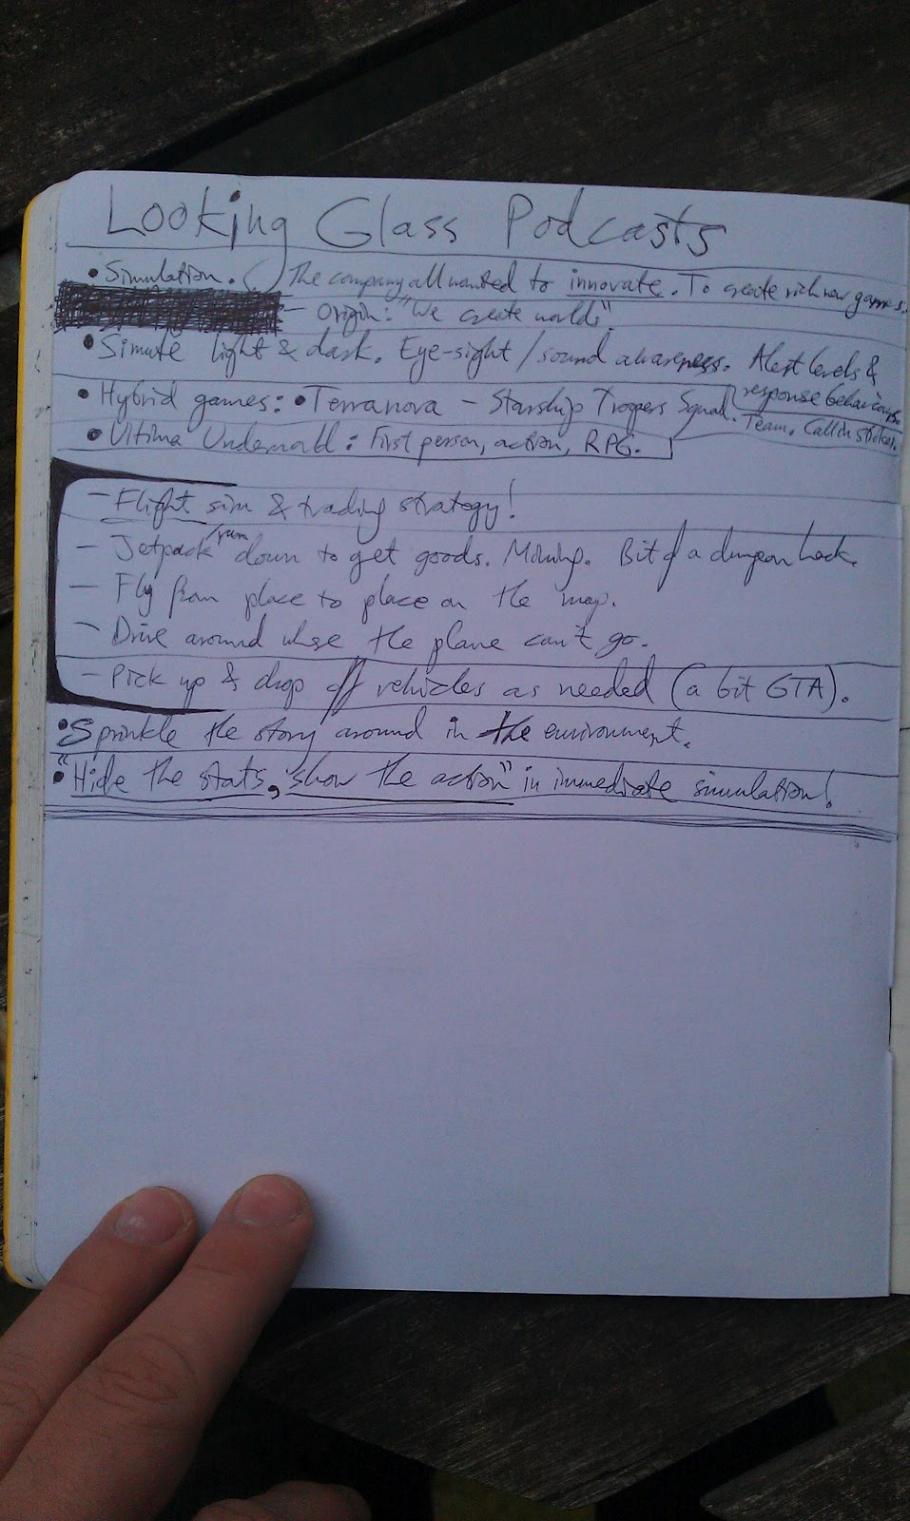 Looking Glass Podcasts
• Simulation. ( The company all wanted to innovate. To create rich new games.
– Origin: "We create worlds"
• Simute light & dark. Eye-sight / sound awareness. Alert levels &
response behaviours.
• Hybrid games: • Terranova – Starship Troopers Squad.
Team. Call in strikes.
• Ultima Underworld: First person, action, RPG.
– Flight sim & trading strategy!
– Jetpack / run down to get goods. Mining. Bit of a dungeon hack.
– Fly from place to place on the map.
– Drive around where the plane can't go.
– Pick up & drop off vehicles as needed (a bit GTA).
• Sprinkle the story around in the environment.
• "Hide the stats, show the action" in immediate simulation!